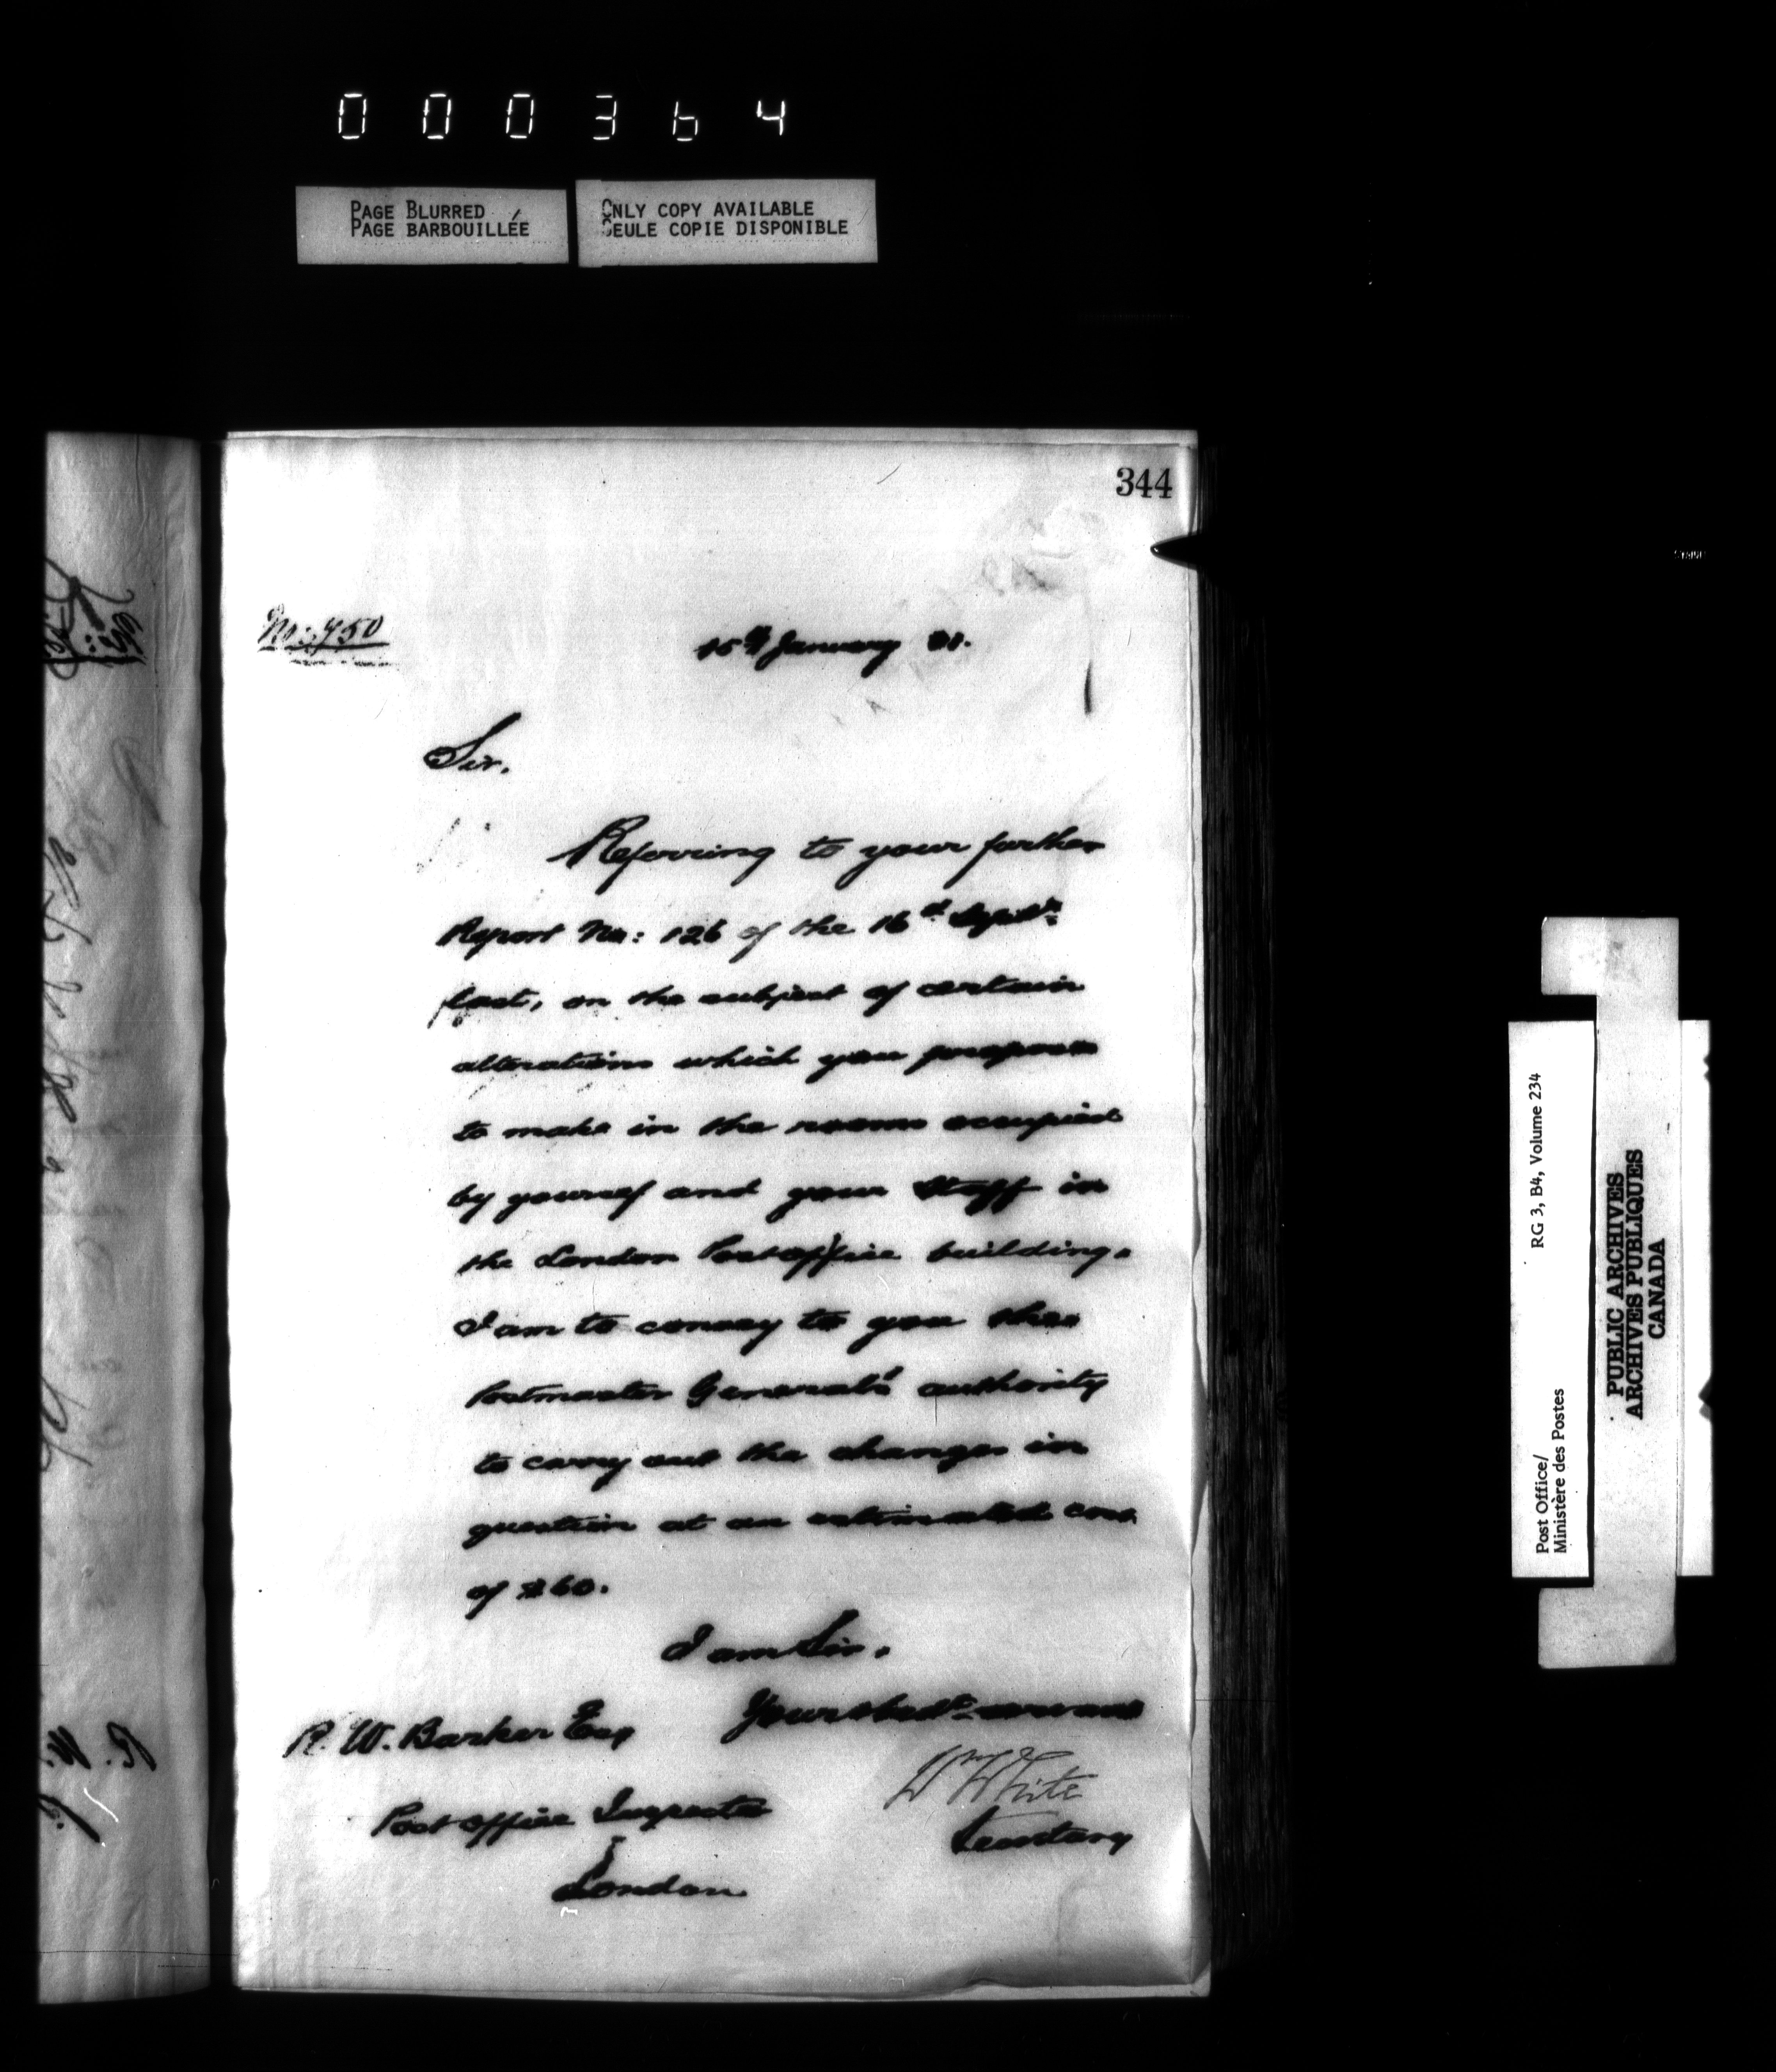 000364
PAGE BLURRED
PAGE BARBOUILLÉE
ONLY COPY AVAILABLE
SEULE COPIE DISPONIBLE
344
No: 750
15th January 81.
Sir.
Referring to your further
Report No: 126 of the 16th Septr
last, on the subject of certain
alterations which you propose
to make in the rooms occupied
by yourself and your Staff in
the London Post office building.
I am to convey to you the
Postmaster General's authority
to carry out the changes in
question at an estimated cost
of $60.
I am Sir.
Your obedt servant
R. W. Barker Esq
Wm White
Post office Inspector
Secretary
London
Post Office/
Ministère des Postes
RG 3, B4, Volume 234
PUBLIC ARCHIVES
ARCHIVES PUBLIQUES
CANADA